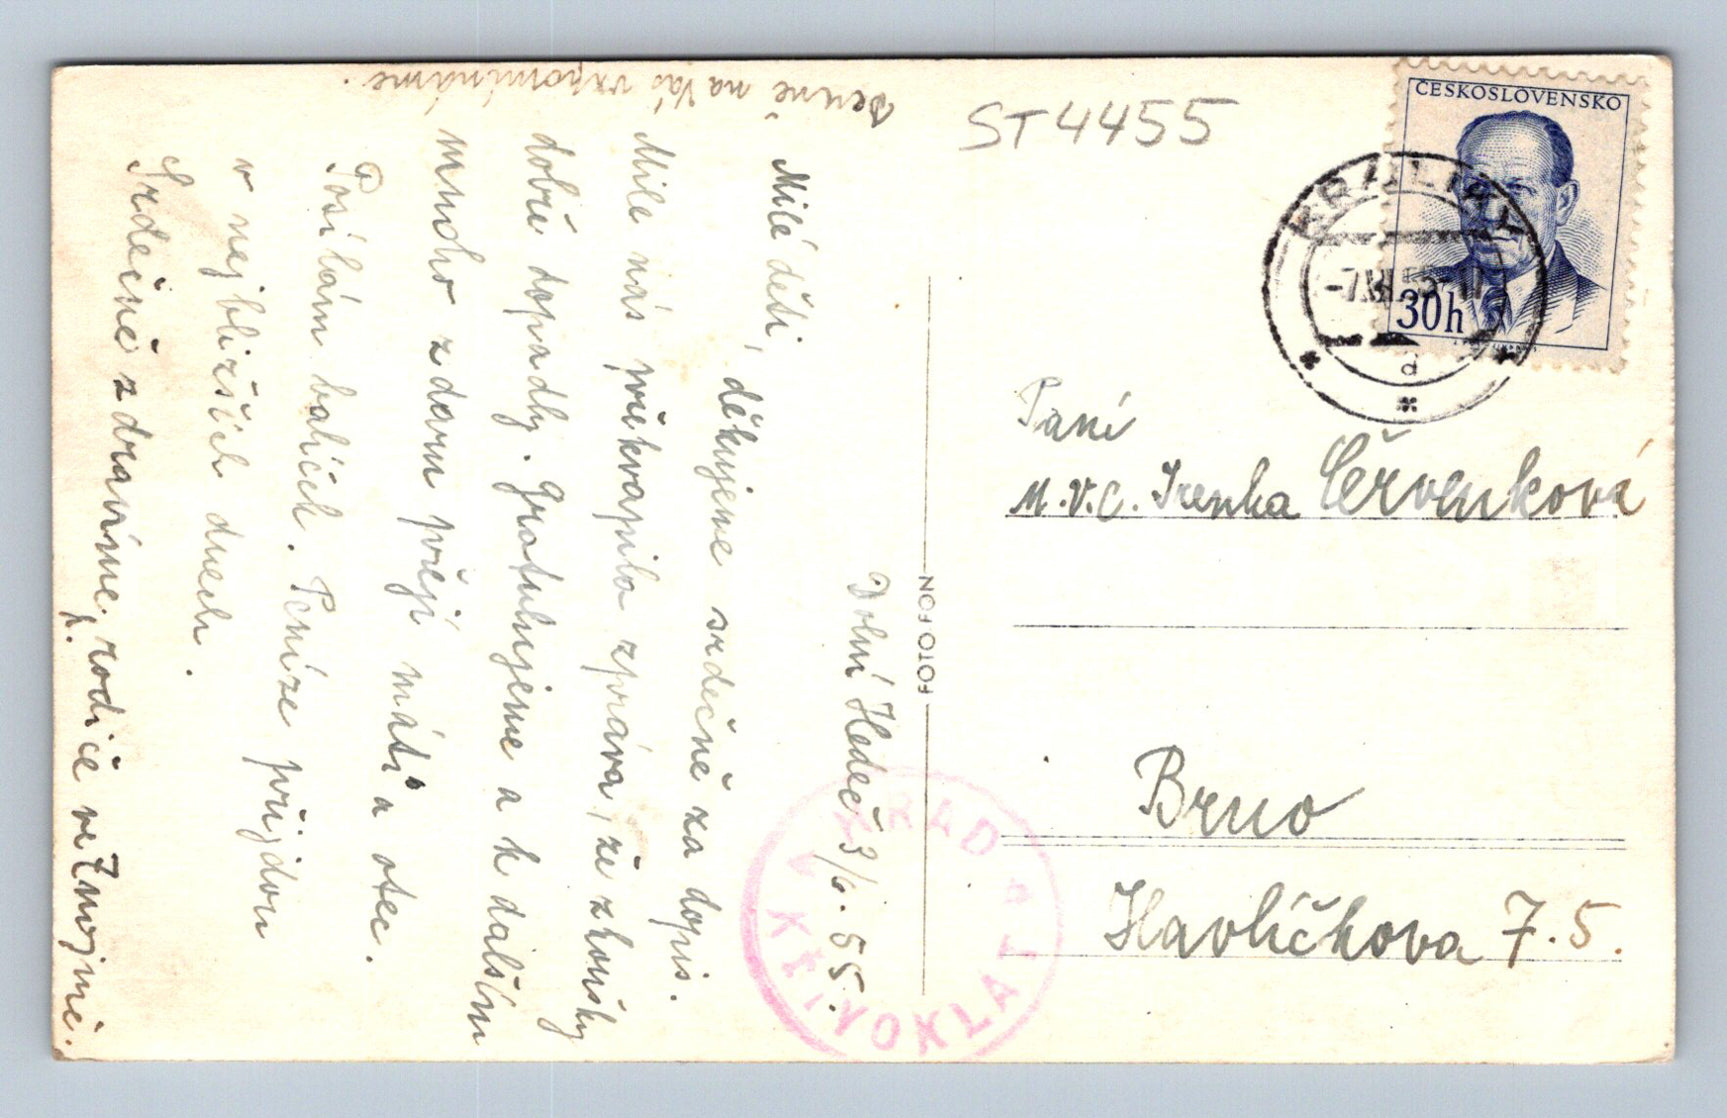 Denně na Vás vzpomínáme.
ST4455
ČESKOSLOVENSKO
30h
KRÁLÍKY
-7.VI.55-11
d
Dolní Hedeč 3/6. 55.
Milé děti, děkujeme srdečně za dopis.
Mile nás překvapila zpráva, že zkoušky
dobře dopadly. Gratulujeme a k dalším
mnoho zdaru přejí máti a otec.
Posílám balíček. Peníze přijdou
v nejbližších dnech.
Srdečně zdravíme, rodiče ve Znojmě.
FOTOFON
HRAD
KŘIVOKLÁT
Paní
M.V.C. Irenka Červenková
Brno
Havlíčkova 7.5.